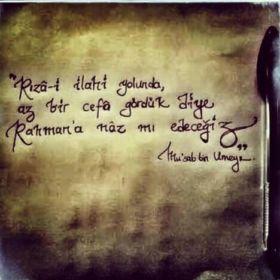 "Rızâ-i ilahi yolunda,
az bir cefâ gördük diye
Rahman'a nâz mı edeceğiz"
Mus'ab bin Umeyr